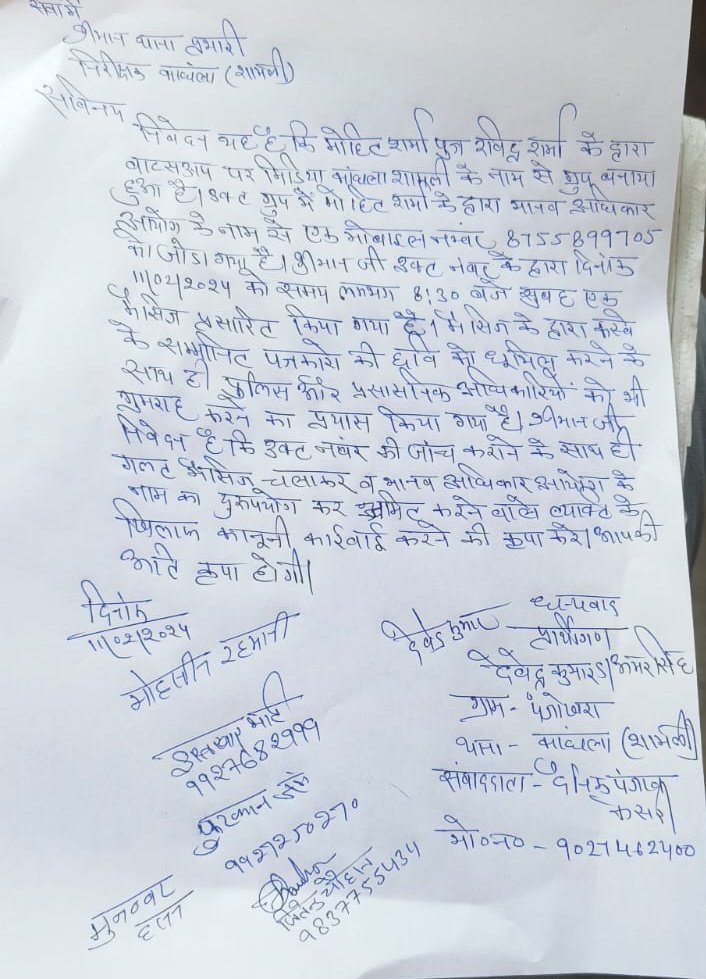 सेवा में
श्रीमान थाना प्रभारी
निरीक्षक कांधला (शामली)
सविनय
निवेदन यह है कि मोहित शर्मा पुत्र रविन्द्र शर्मा के द्वारा
वाटसअप पर मिडिया कांधला शामली के नाम से ग्रुप बनाया
हुआ है। उक्ट ग्रुप में मोहित शर्मा के द्वारा मानव अधिकार
आयोग के नाम से एक मोबाइल नम्बर 8755899705
को जोडा गया है। श्रीमान जी उक्ट नंबर के द्वारा दिनांक
11/02/2024 को समय लगभग 8:30 बजे सुबह एक
मैसिज प्रसारित किया गया है। मैसिज के द्वारा कस्बे
के सम्मानित पत्रकारो की छवि को धूमिल करने के
साथ ही पुलिस और प्रसासनिक अधिकारियों को भी
गुमराह करने का प्रयास किया गया है। श्रीमान जी
निवेदन है कि उक्ट नंबर की जांच कराने के साथ ही
गलट मैसिज चलाकर व मानव अधिकार आयोग के
नाम का दुरूपयोग कर भ्रमित करने वाले व्यक्ति के
खिलाफ कानूनी कार्रवाई करने की कृपा करे। आपकी
अति कृपा होगी।
दिनांक
11/02/2024
धन्यवाद
प्रार्थीगण
देवेन्द्र कुमार
देवेन्द्र कुमार S/ अमर सिंह
ग्राम - पंजोखरा
थाना - कांधला (शामली)
संवाददाता - दैनिक पंजाब
केसरी
मो०न० - 9027462400
मोहसीन रहमानी
9927682999
फुरकान जंग
9927250270
जितेन्द्र चौहान
9837755434
मुनव्वर
हसन